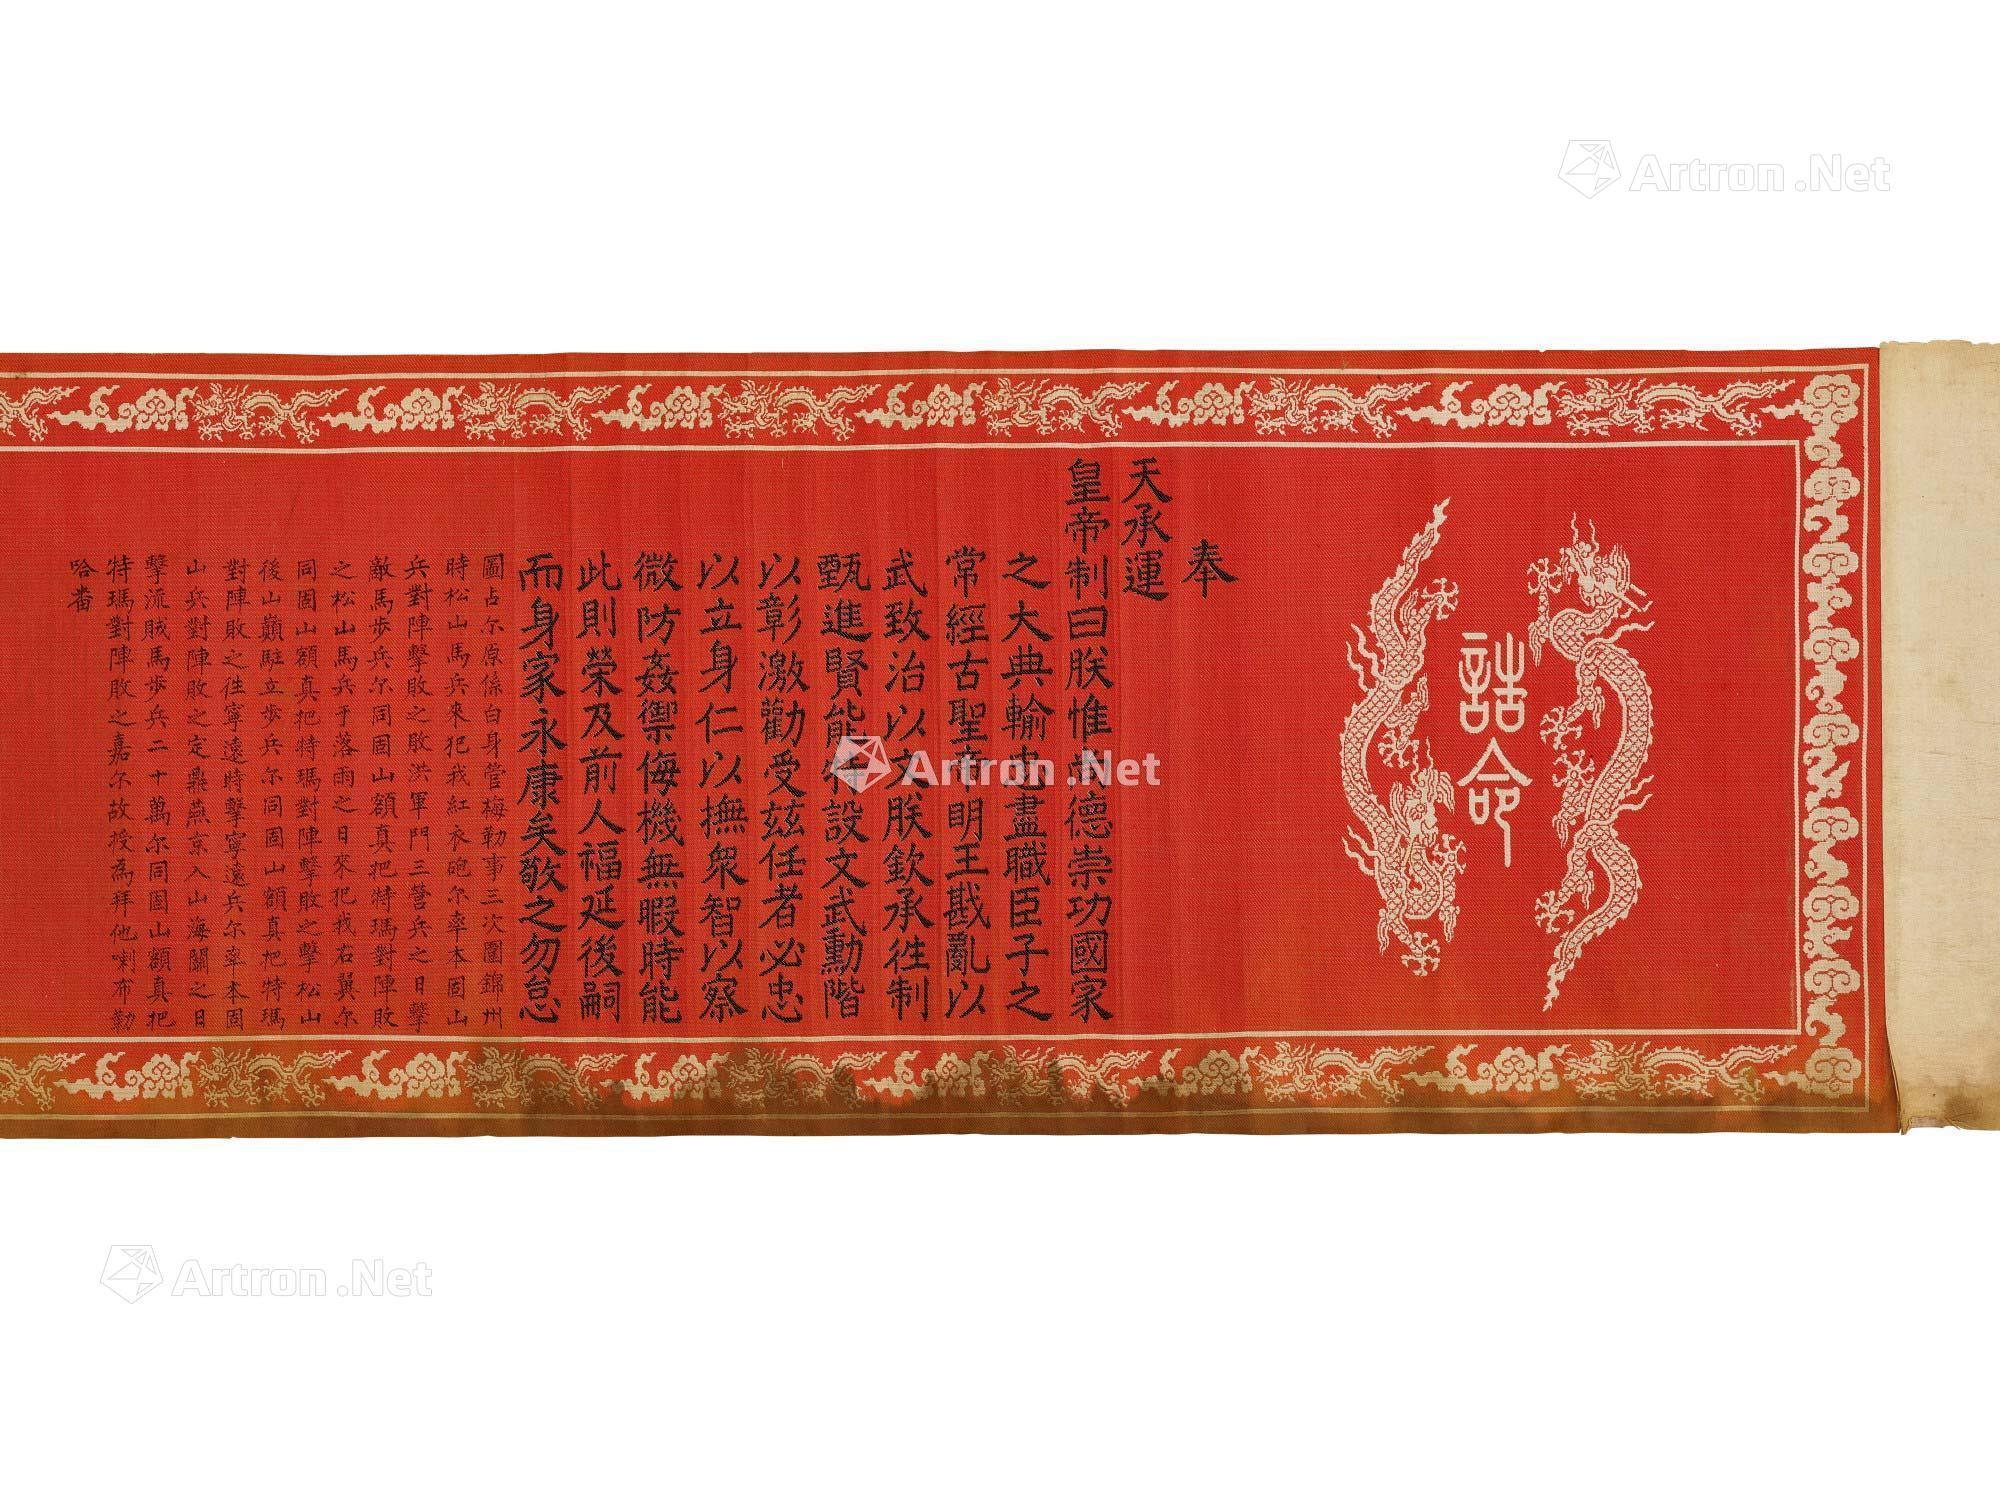 誥命
奉
天承運
皇帝制曰朕惟尚德崇功國家
之大典輸忠盡職臣子之
常經古聖帝明王戡亂以
武致治以文朕欽承往制
甄進賢能特設文武勳階
以彰激勸受茲任者必忠
以立身仁以撫衆智以察
微防姦禦侮機無暇時能
此則榮及前人福延後嗣
而身家永康矣敬之勿怠
圖占尔原係白身管梅勒事三次圍錦州
時松山馬兵來犯我紅衣砲尔率本固山
兵對陣擊敗之敗洪軍門三營兵之日擊
敵馬步兵尔同固山額真把特瑪對陣敗
之松山馬兵于落雨之日來犯我右翼尔
同固山額真把特瑪對陣擊敗之擊松山
後山巔駐立步兵尔同固山額真把特瑪
對陣敗之往寧遠時擊寧遠兵尔率本固
山兵對陣敗之定鼎燕京入山海關之日
擊流賊馬步兵二十萬尔同固山額真把
特瑪對陣敗之嘉尔故授為拜他喇布勒
哈番
Artron.Net
Artron.Net
Artron.Net